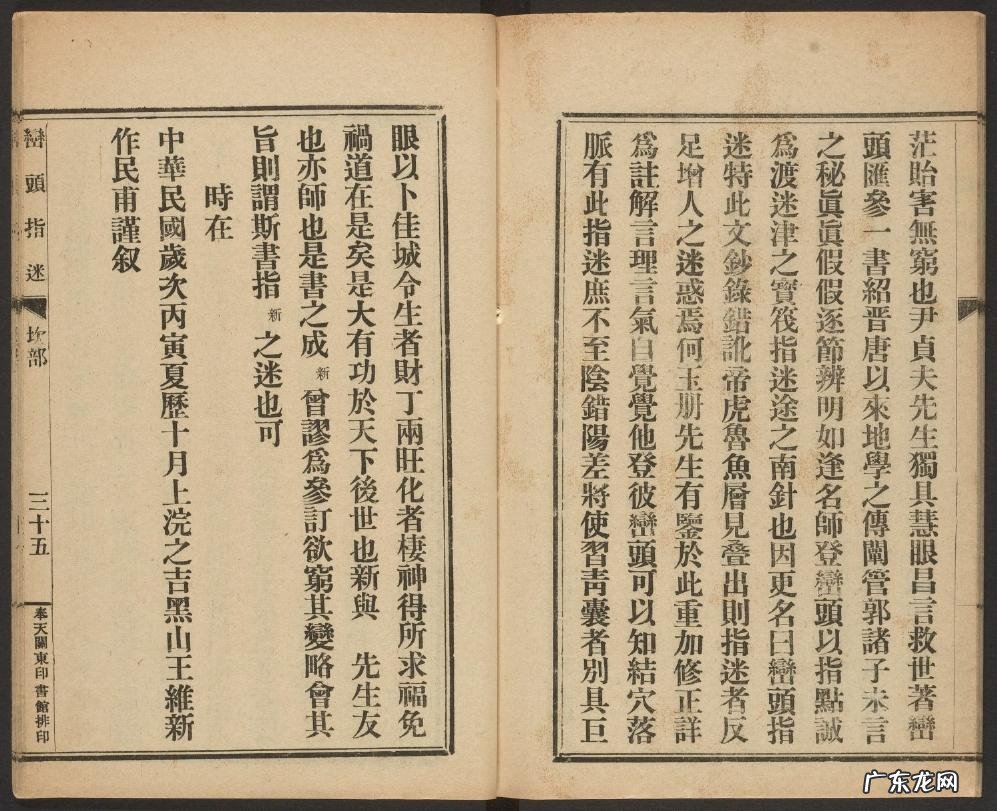 茫貽害無窮也尹貞夫先生獨具慧眼昌言救世著巒
頭匯參一書紹晋唐以來地學之傳闡管郭諸子未言
之秘眞眞假假逐節辨明如逢名師登巒頭以指點誠
爲渡迷津之寶筏指迷途之南針也因更名曰巒頭指
迷特此文鈔錄錯訛帝虎魯魚層見叠出則指迷者反
足增人之迷惑焉何玉册先生有鑒於此重加修正詳
爲註解言理言氣自覺覺他登彼巒頭可以知結穴落
脈有此指迷庶不至陰錯陽差將使習靑囊者別具巨
眼以卜佳城令生者財丁兩旺化者棲神得所求福免
禍道在是矣是大有功於天下後世也新與 先生友
也亦師也是書之成新曾謬爲參訂欲窮其變略會其
旨則謂斯書指新之迷也可
時在
中華民國歲次丙寅夏歷十月上浣之吉黑山王維新
作民甫謹叙
巒頭指迷 坎部 三十五 奉天關東印書館排印
广东龙网